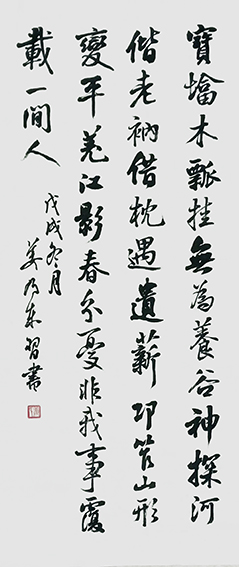 寶木瓢挂無為養谷神探河
偕老衲借枕遇遺薪邛笮山形
變平羌江影春分憂非我事覆
載一閒人
戊戌冬月
姜乃東習書